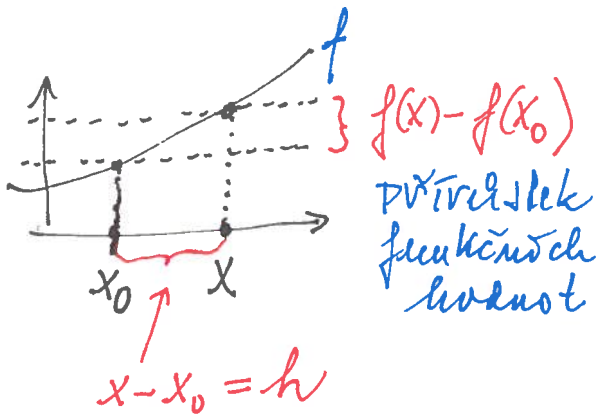 f
f(x)-f(x₀)
přírůstek
funkčních
hodnot
x₀ x
x-x₀=h